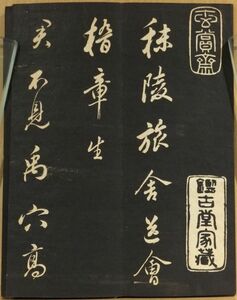 玄賞齋
秣陵旅舍送會
稽章生
君不見禹穴高
鑑古堂家藏